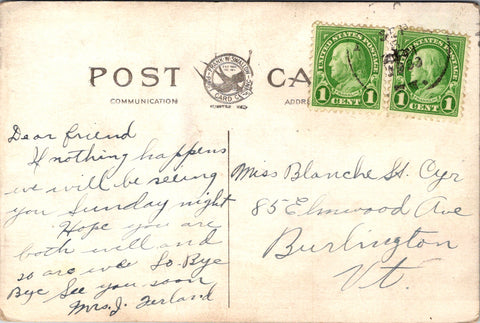 POST CARD
COMMUNICATION
ADDRESS
UNITED STATES POSTAGE
1 CENT 1
UNITED STATES POSTAGE
1 CENT 1
Dear friend
If nothing happens
we will be seeing
you Sunday night
Hope you are
both well and
so are we So-Bye
Bye See you soon
Mrs. J. Ferland
Miss Blanche St. Cyr
85 Elmwood Ave
Burlington
Vt.